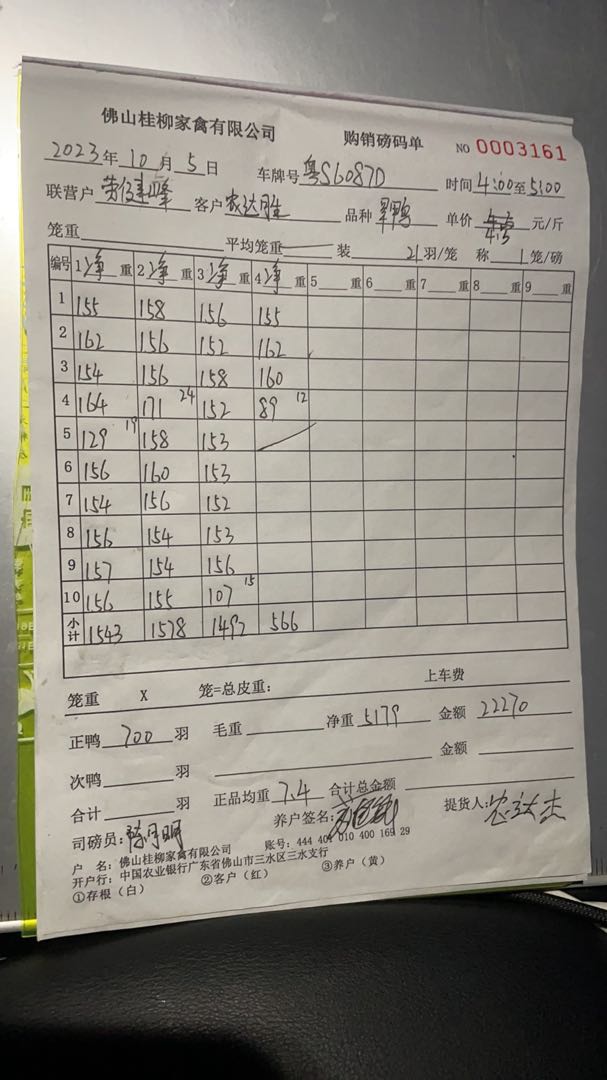 佛山桂柳家禽有限公司 购销磅码单 NO 0003161
2023年10月5日 车牌号 粤S6087D 时间 4:00至5:00
联营户 客户 农达胜 品种 单价 4.3 元/斤
笼重 平均笼重 装 21 羽/笼 称 1 笼/磅
编号 1 净 重 2 净 重 3 净 重 4 净 重 5 重 6 重 7 重 8 重 9 重
1 155 158 156 155
2 162 156 152 162
3 154 156 158 160
4 164 171 24 152 89 12
5 129 19 158 153
6 156 160 153
7 154 156 152
8 156 154 153
9 157 154 156
10 156 155 107 15
小计 1543 1578 1492 566
笼重 X 笼=总皮重: 上车费
正鸭 700 羽 毛重 净重 5179 金额 22270
次鸭 羽 金额
合计 羽 正品均重 7.4 合计总金额
司磅员: 陈月明 养户签名: 提货人: 农达杰
户 名: 佛山桂柳家禽有限公司 账号: 444 401 010 400 169 29
开户行: 中国农业银行广东省佛山市三水区三水支行
①存根（白） ②客户（红） ③养户（黄）